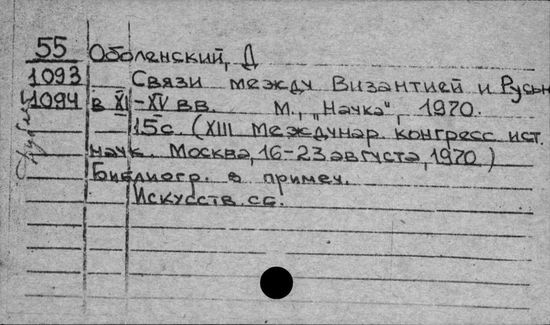 55 Оболенский, Д
1093 Связи между Византией и Русью
1094 в XI-XV вв. М., „Наука", 1970.
15с (XIII междунар. конгресс ист.
наук. Москва, 16-23 августа, 1970.)
Библиогр. в примеч.
Искусств. сб.